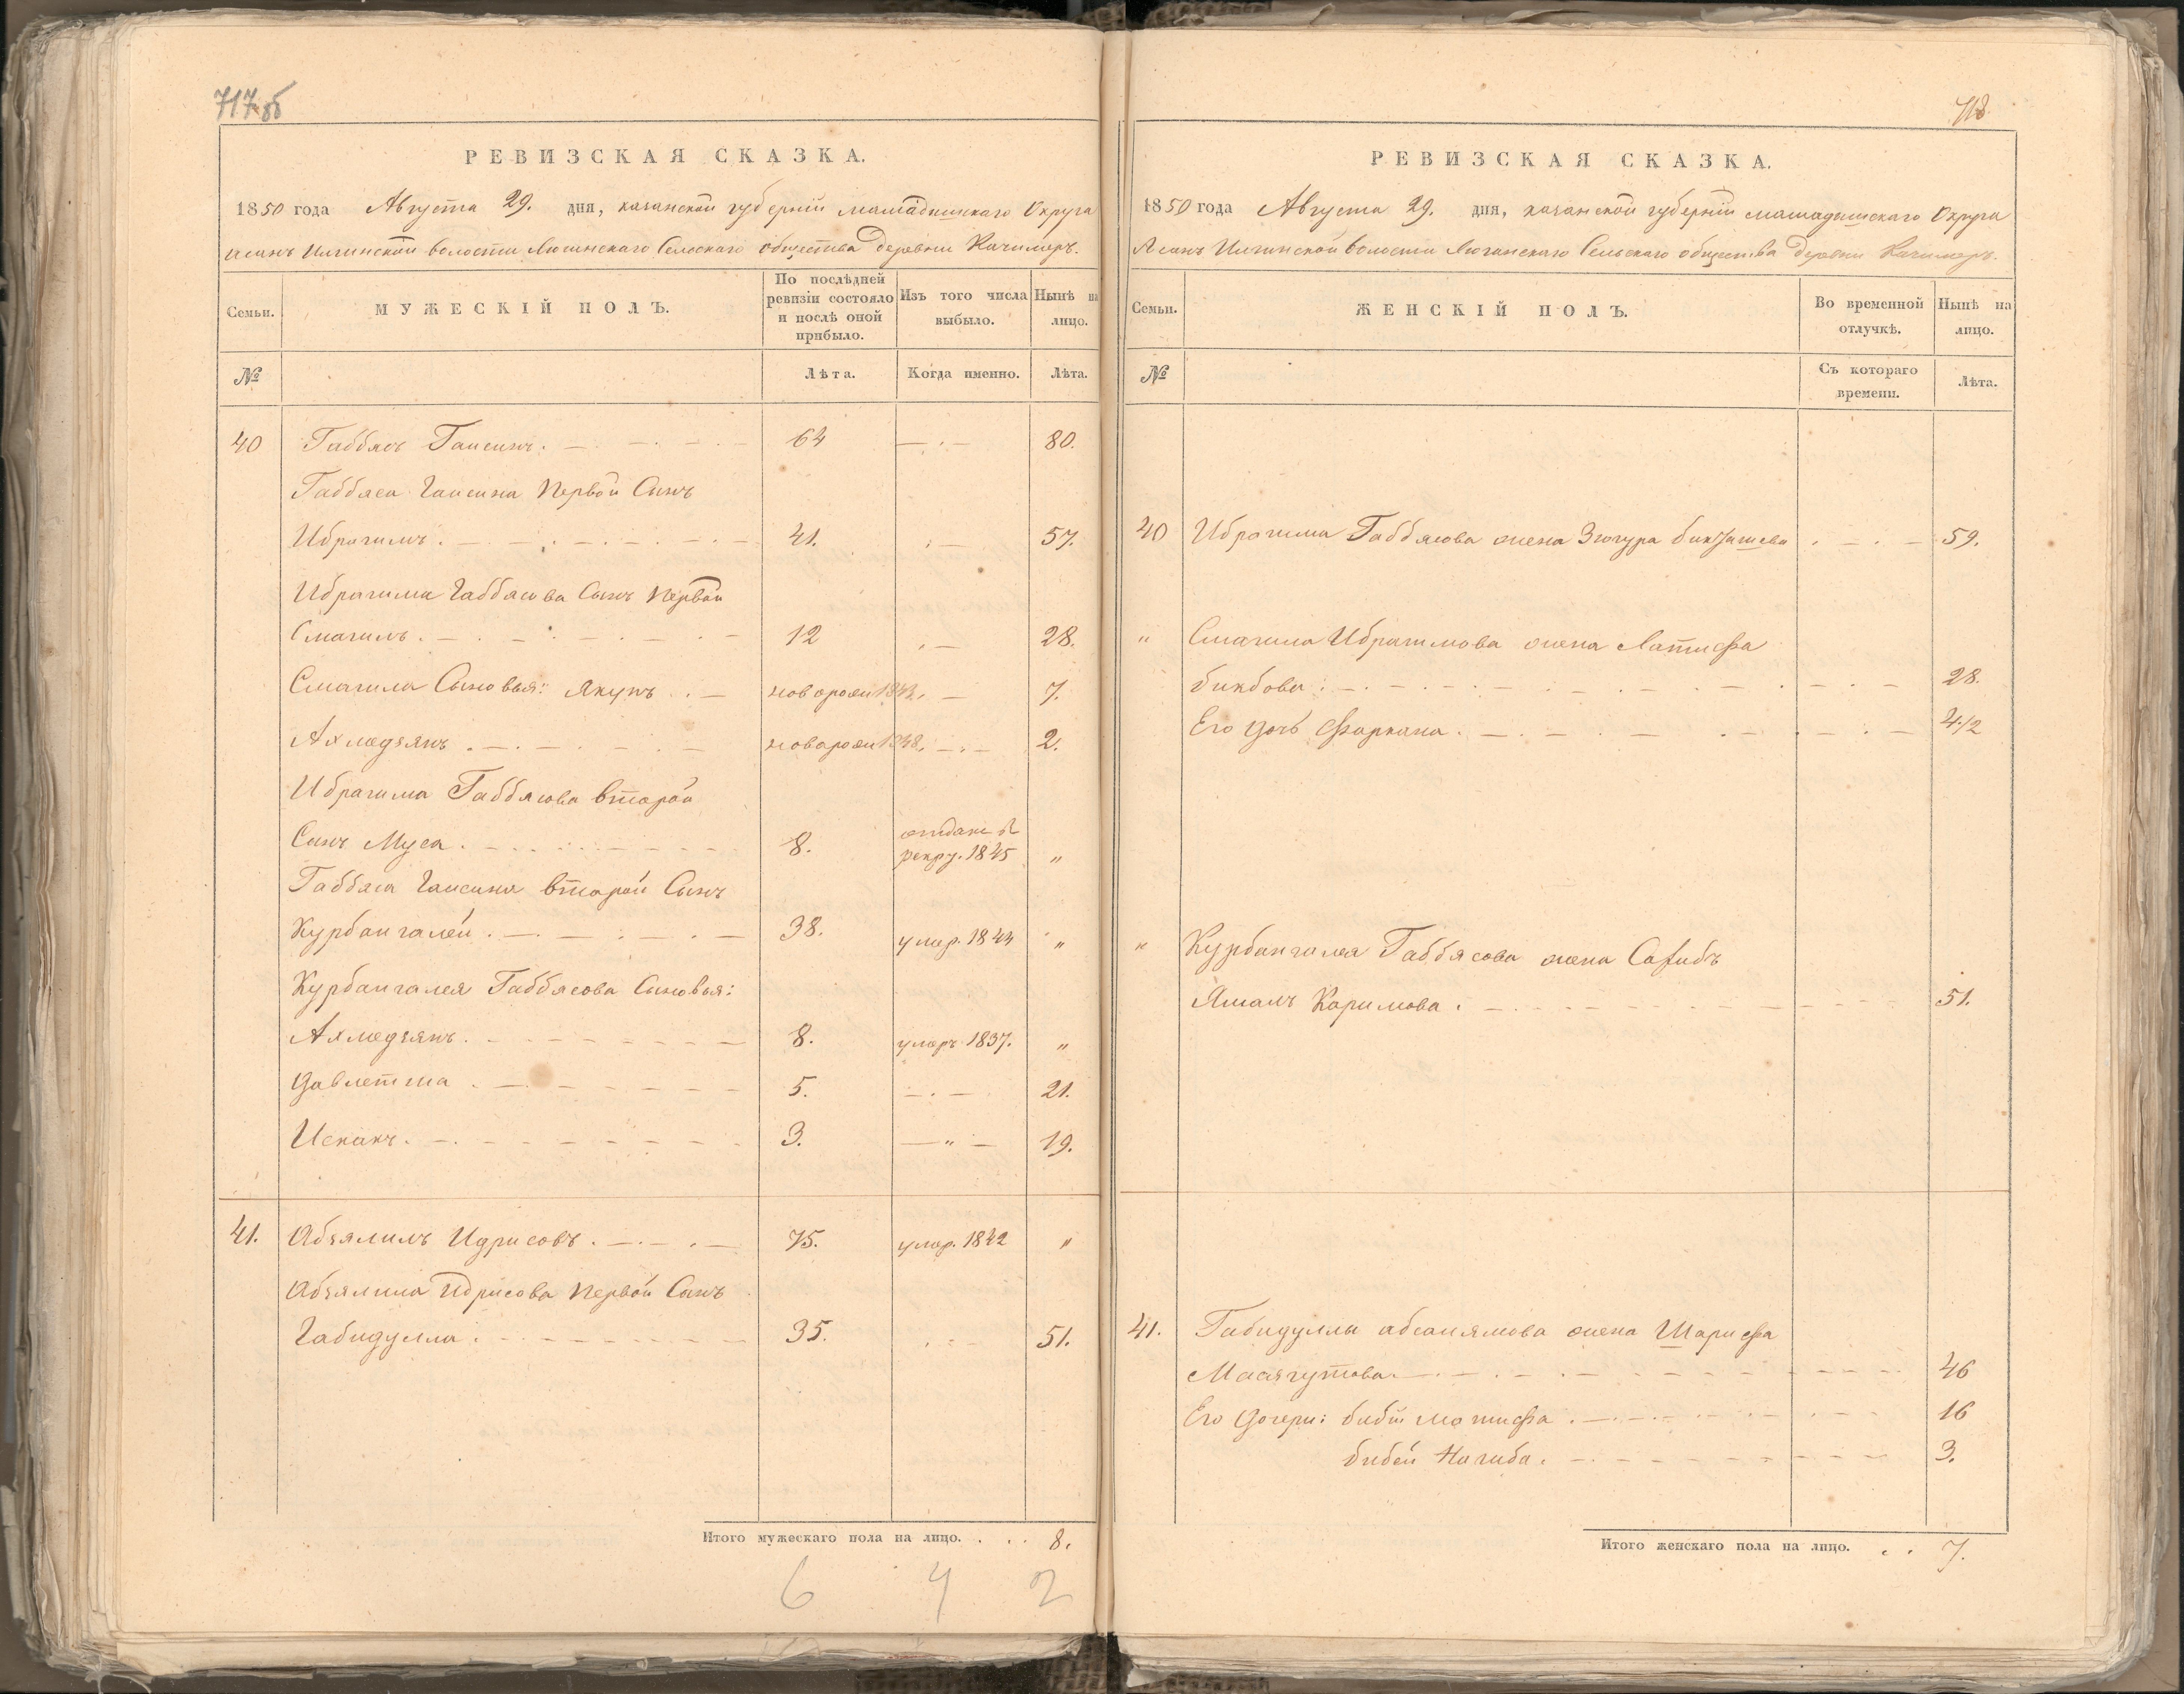 717 об
РЕВИЗСКАЯ СКАЗКА.
1850 года Августа 29. дня, казанской губерніи мамадышскаго Округа
асанъ Илгинской волости Люгинскаго Сельскаго общества деревни Качимеръ.
Семьи.
МУЖЕСКІЙ ПОЛЪ.
По послѣдней ревизіи состояло и послѣ оной прибыло.
Изъ того числа выбыло.
Нынѣ на лицо.
№
Лѣта.
Когда именно.
Лѣта.
40 Габбясъ Гаисинъ. 64 — . — 80.
Габбяса Гаисина Первой Сынъ
Ибрагимъ. 41. . — 57.
Ибрагима Габбясова Сынъ Первой
Смагилъ. 12 . — 28.
Смагила Сыновья: Якупъ . — новорожд 1843. — 7.
Ахмедзянъ . новорожд 1848. — . — 2.
Ибрагима Габбясова второй
Сынъ Муса. 8. отдан в рекру. 1845 "
Габбяса Гаисина второй Сынъ
Курбангалей . 38. умер. 1844 "
Курбангалея Габбясова Сыновья:
Ахмедзянъ. 8. умеръ 1837. "
Давлетша . 5. — . — 21.
Исхакъ. 3. — " — 19.
41. Абзялилъ Идрисовъ . 75. умер. 1842 "
Абзялила Идрисова Первой Сынъ
Габидулла . 35. . — 51.
Итого мужескаго пола на лицо. . . . 8.
6 4 2
718
РЕВИЗСКАЯ СКАЗКА.
1850 года Августа 29. дня, казанской губерніи мамадышскаго Округа
Асанъ Илгинской волости Люганскаго Сельскаго общества деревни Качимеръ.
Семьи.
ЖЕНСКІЙ ПОЛЪ.
Во временной отлучкѣ.
Нынѣ на лицо.
№
Съ котораго времени.
Лѣта.
40 Ибрагима Габбясова жена Зюгура . — . — 59.
" Смагила Ибрагимова жена Латифа
бикбова . 28.
Его дочь Фархана . 4 1/2
" Курбангалея Габбясова жена Сагибъ
Ямалъ Каримова . 51.
41. Габидуллы жена Шарифа
Масягутова. 46
Его Дочери: биби Латифа . 16
бибей Нагиба. 3.
Итого женскаго пола на лицо. . . 7.